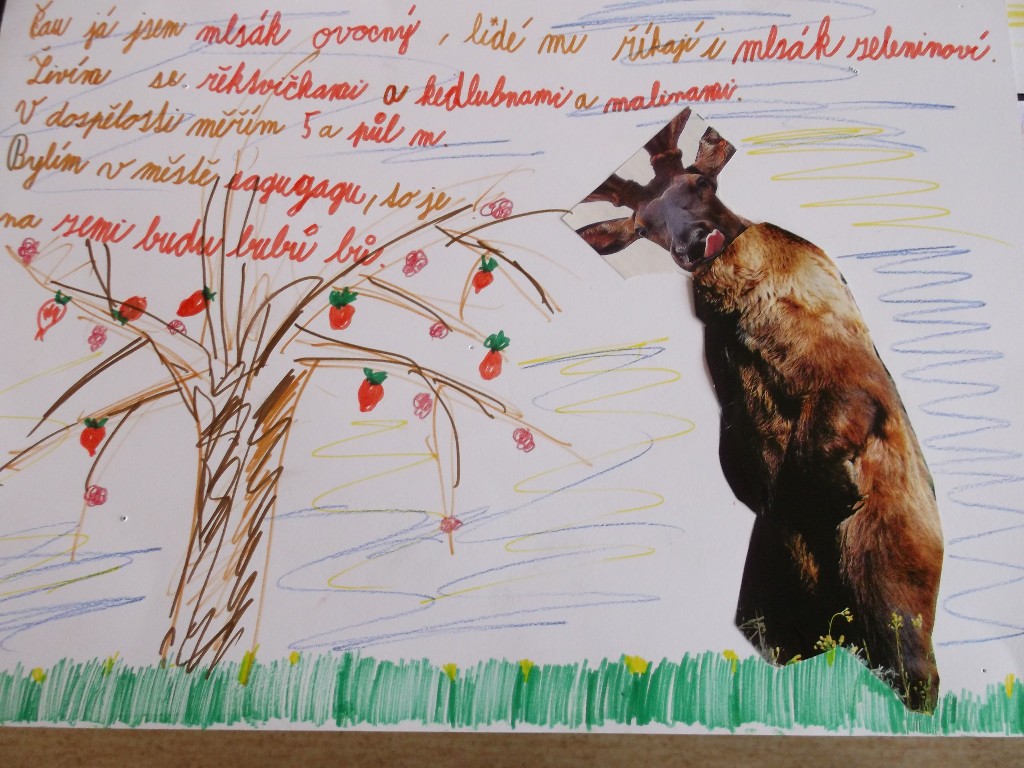 Čau já jsem mlsák ovocný, lidé mu říkají i mlsák zeleninoví.
Živím se řěksvičkami a kedlubnami a malinami.
V dospělosti měřím 5 a půl m.
Bylím v městě gagugagu, to je
na zemi budu bubů bů.